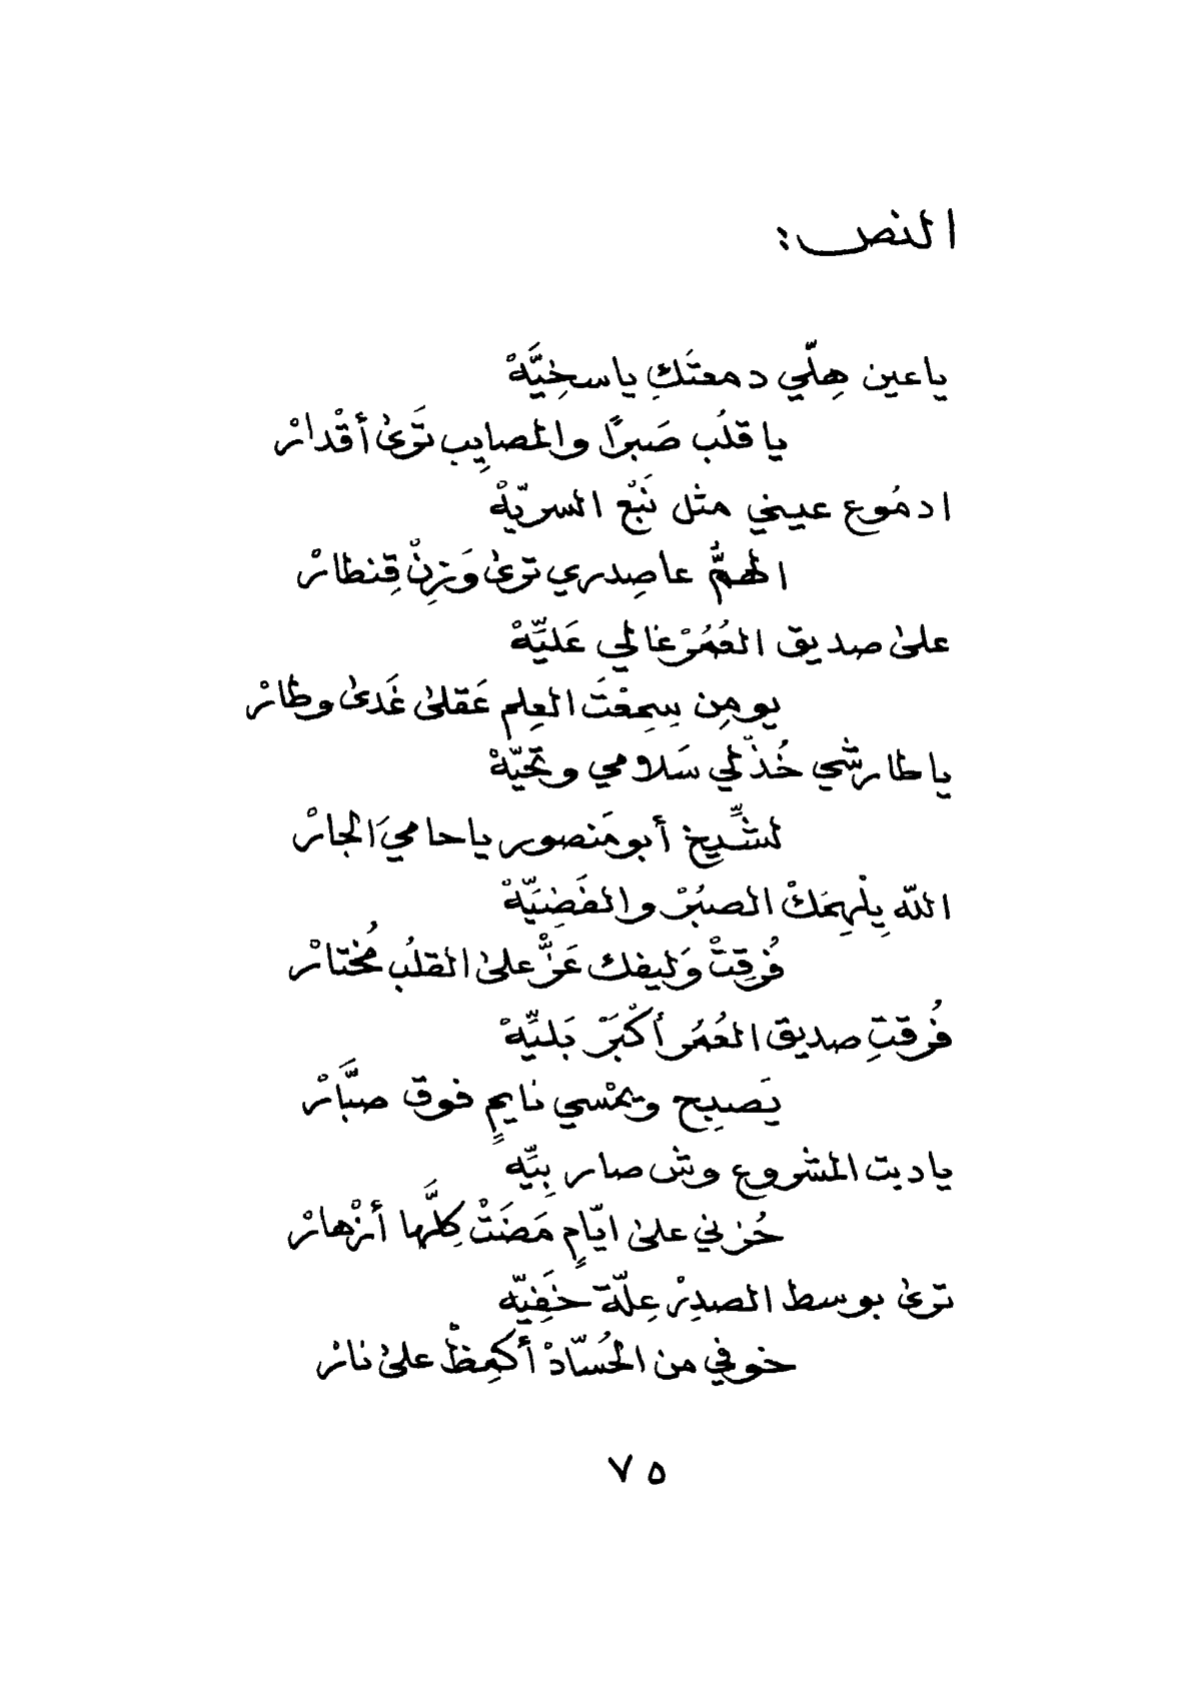 النص:
ياعين هِلّي دمعتَكِ ياسخِيَّهْ
يا قلُب صَبرًا والمصايِب تَرَىٰ أقْدارْ
ادمُوع عيني مثل نَبْع السريّهْ
الهمُّ عاصِدري ترىٰ وَزِنْ قِنطارْ
علىٰ صديق العُمُرْ غالي عَليِّهْ
يومِن سِمِعْتَ العِلم عَقلىٰ غَدىٰ وطارْ
ياطارشي خُذْلي سَلامي وتحيّهْ
لشِّيخ أبو مَنصور ياحاميَ الجارْ
الله يِلْهِمَكْ الصبُرْ والفَضِيَّهْ
فُرقِتْ وَليفك عَزّْ علىٰ القلُب مُختارْ
فُرقتِ صديق العُمُر أكْبَرْ بَليِّهْ
يَصبِح ويمْسي نايمٍ فوق صبَّارْ
ياديت المشروع وش صار بِيِّه
حُزني علىٰ ايّامٍ مَضَتْ كِلَّها أزْهارْ
ترىٰ بوسط الصدِرْ عِلّة خَفِيّه
خوفي من الحُسّادْ أكمِظْ علىٰ نارْ
٧٥